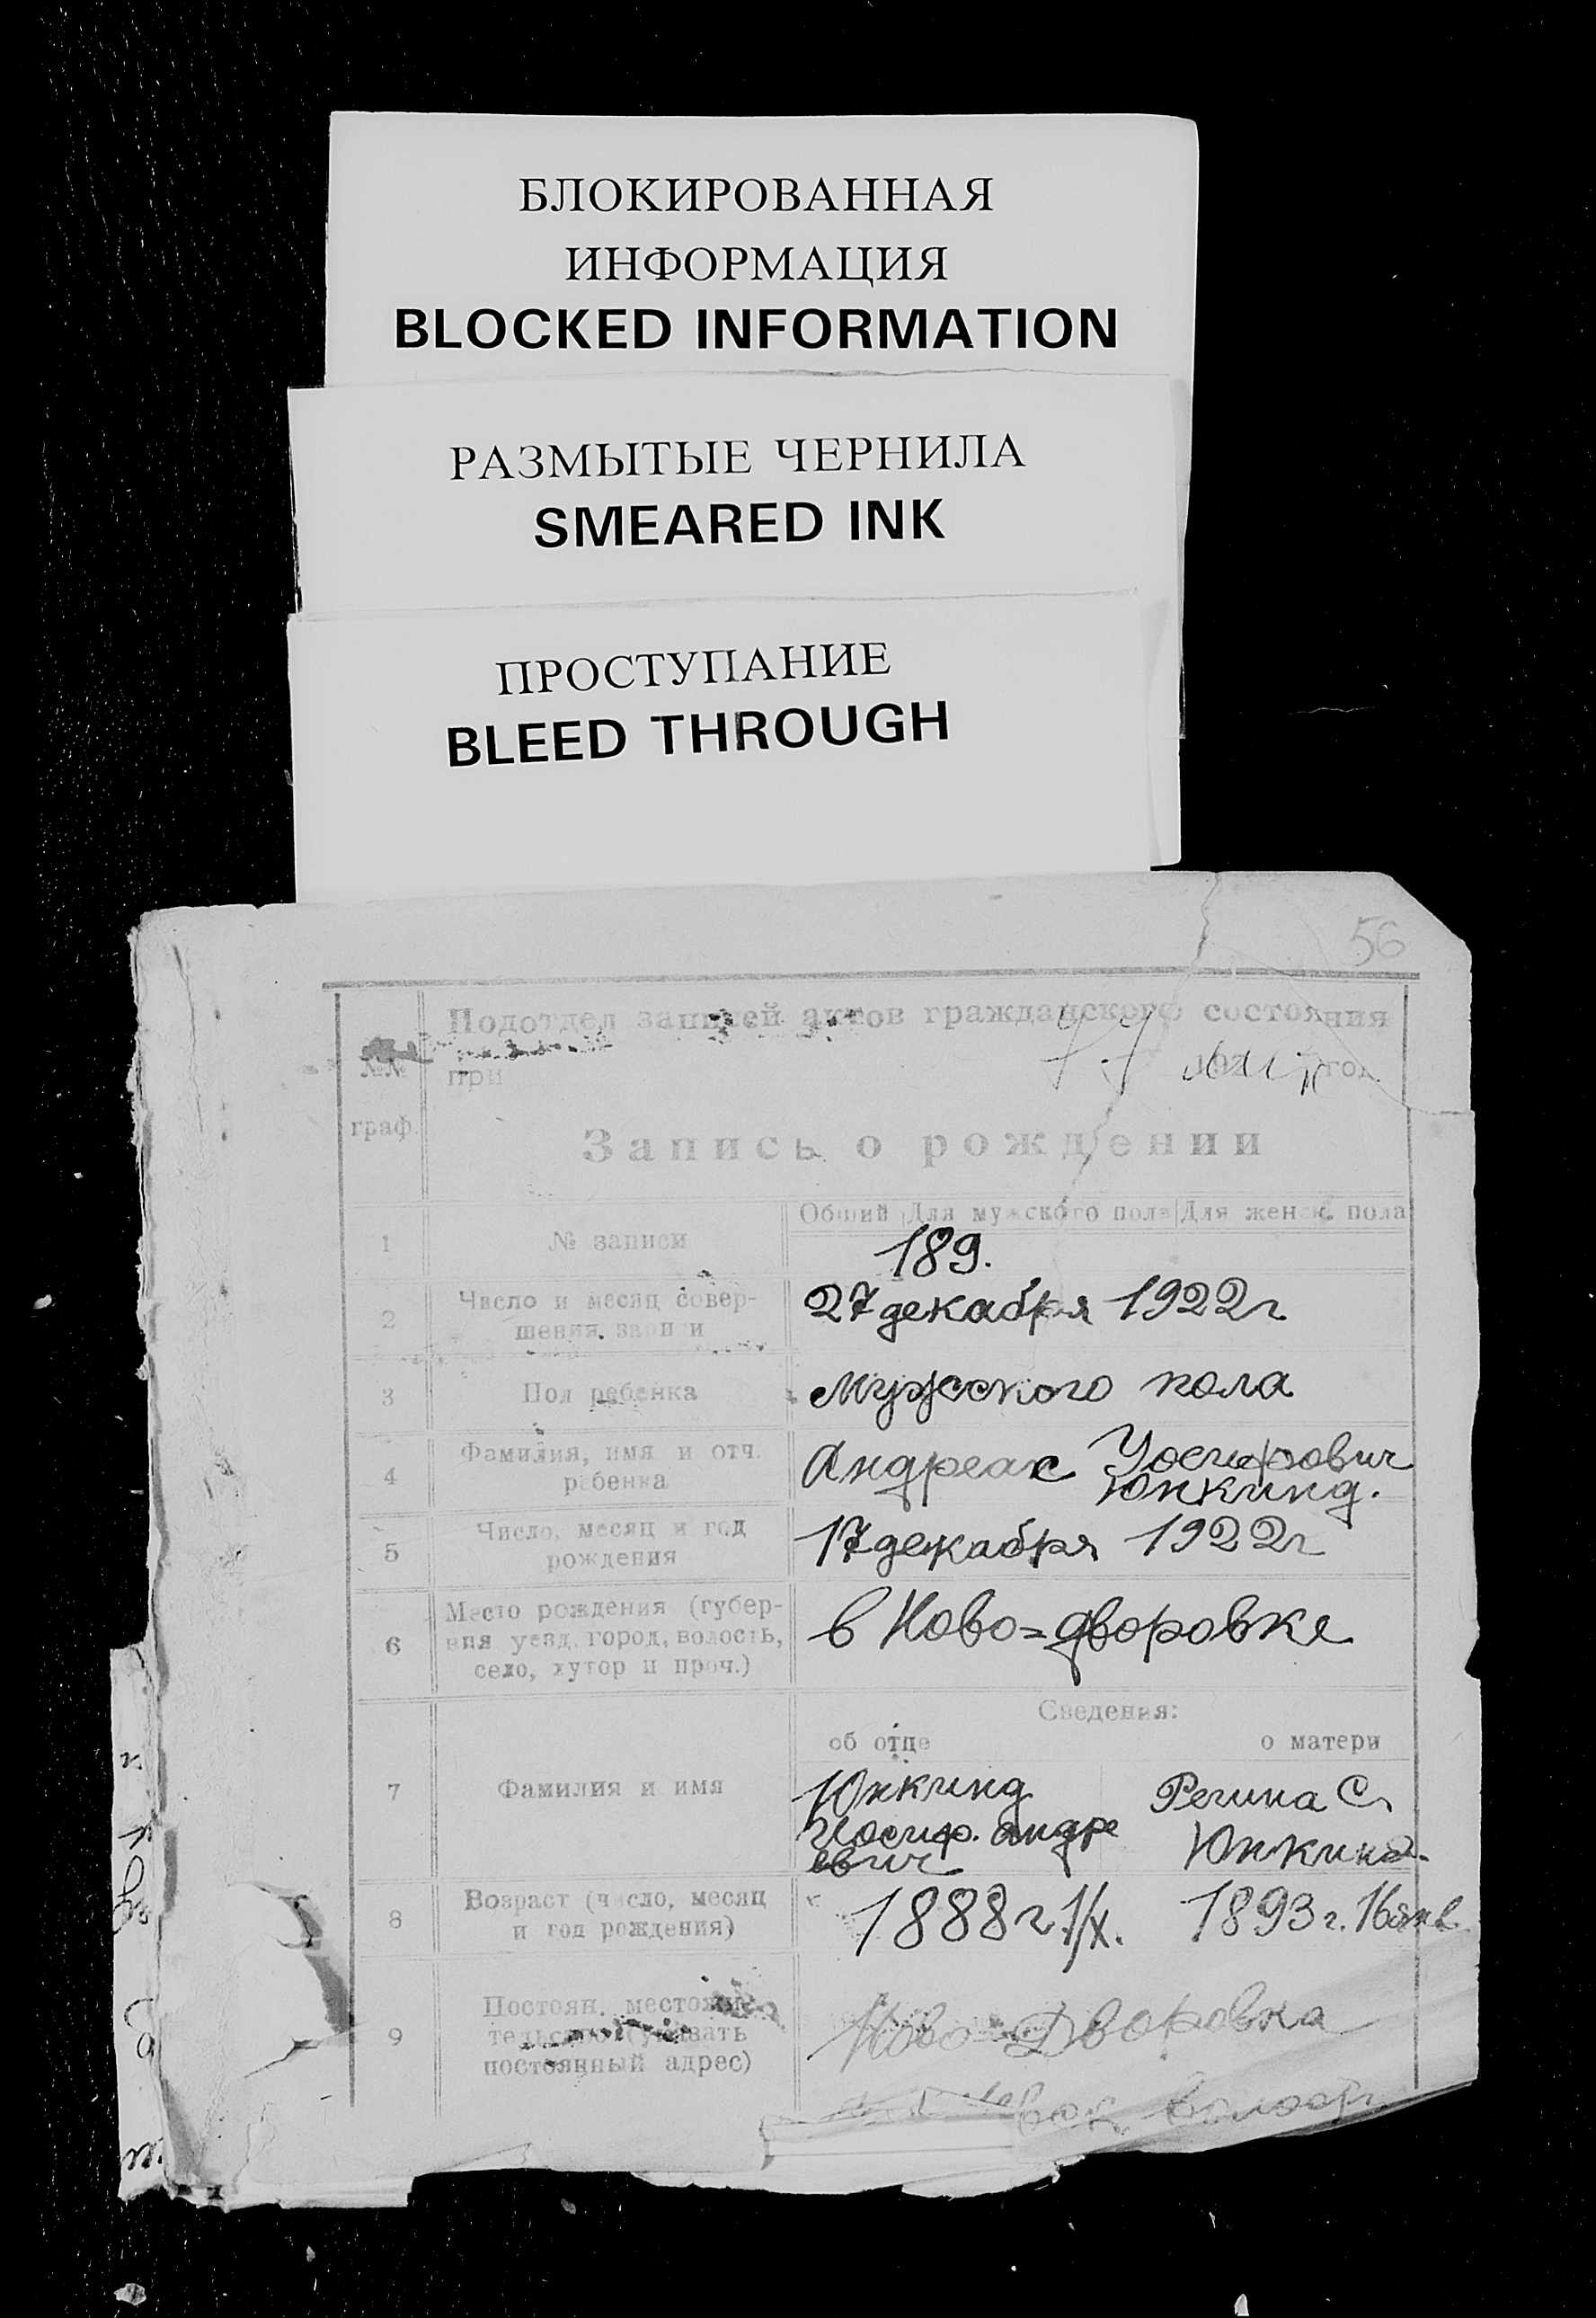 БЛОКИРОВАННАЯ
ИНФОРМАЦИЯ
BLOCKED INFORMATION
РАЗМЫТЫЕ ЧЕРНИЛА
SMEARED INK
ПРОСТУПАНИЕ
BLEED THROUGH
56
Подотдел записей актов гражданского состояния
№№ при год
граф.
Запись о рождении
Общий Для мужского пола Для женск. пола
1 № записи 189.
2 Число и месяц совер-
шения записи 27 декабря 1922 г
3 Пол ребенка мужского пола
4 Фамилия, имя и отч.
ребенка Андреас Иосифович
Юнкинд.
5 Число, месяц и год
рождения 17 декабря 1922 г
6 Место рождения (губер-
ния уезд, город, волость,
село, хутор и проч.) в Ново=дворовке
Сведения:
об отце о матери
7 Фамилия и имя Юнкинд Регина С.
Иосиф. андре Юнкинд.
евич
8 Возраст (число, месяц
и год рождения) 1888 г. 1/X. 1893 г. 16 янв.
9 Постоян. местожи-
тельство (указать
постоянный адрес) Ново-Дворовка